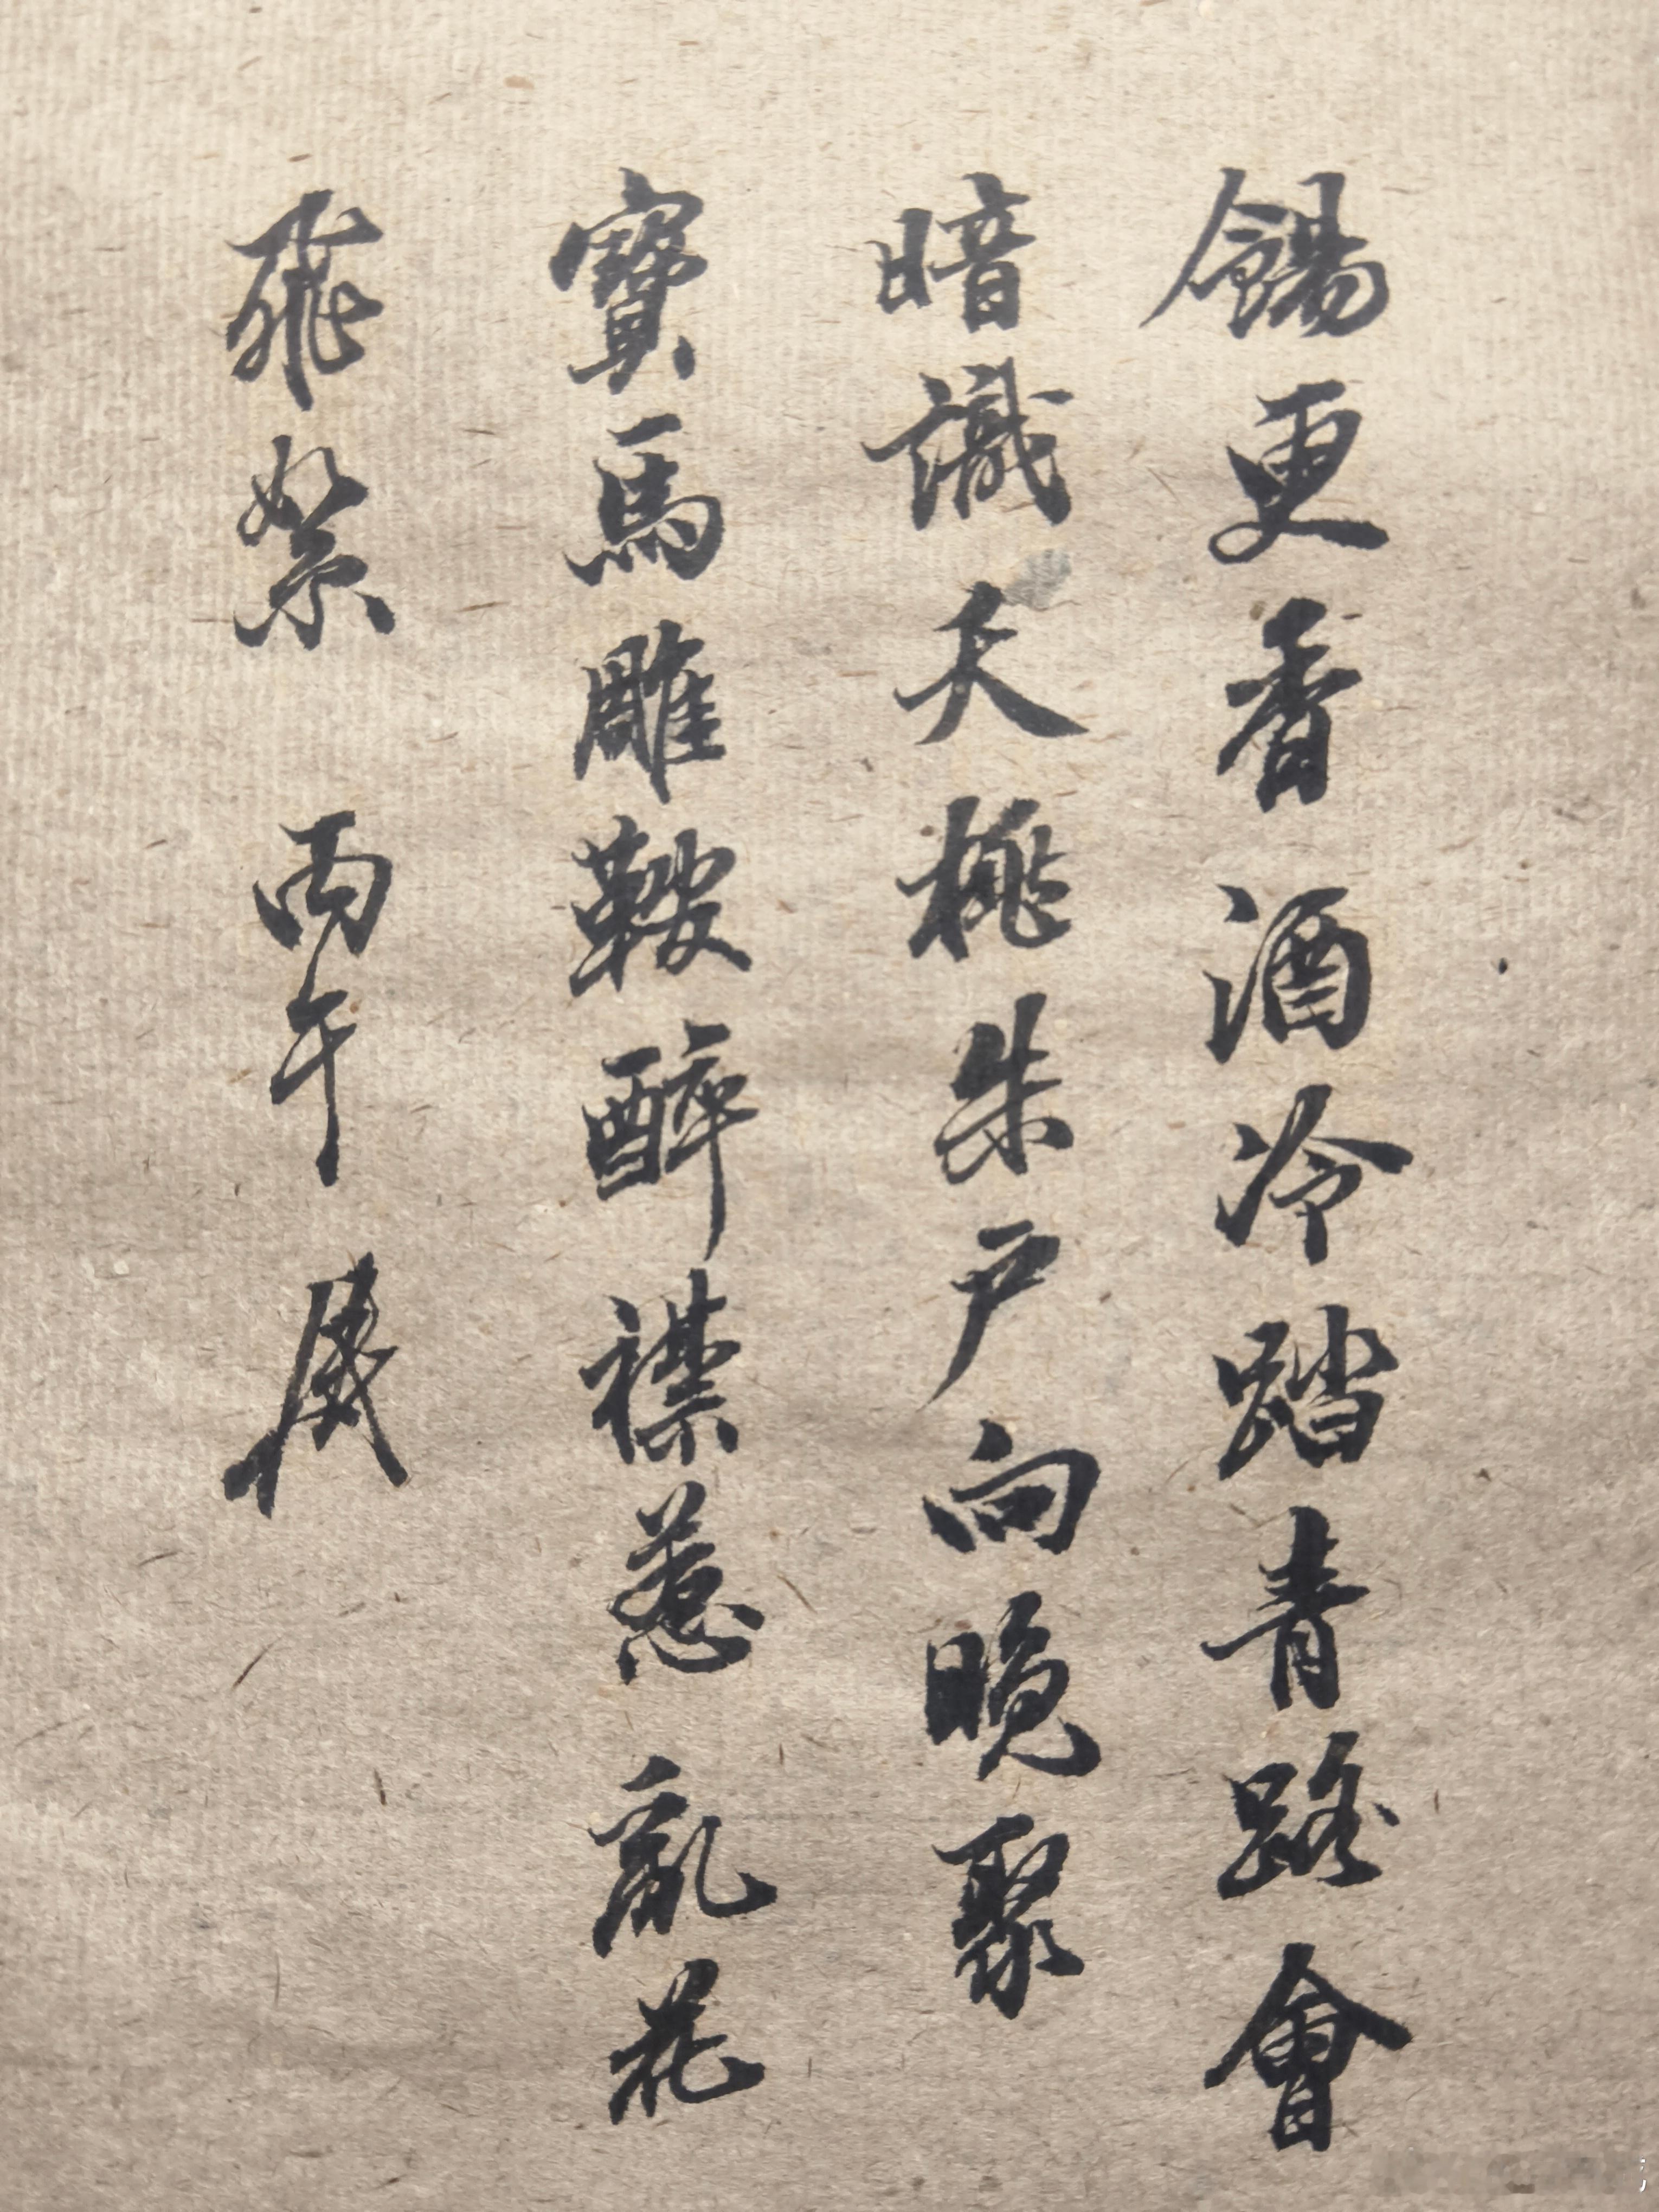 餳更香酒冷踏青路會
暗識夭桃朱戶向晚聚
寶馬雕鞍醉襟惹亂花
飛絮 丙午